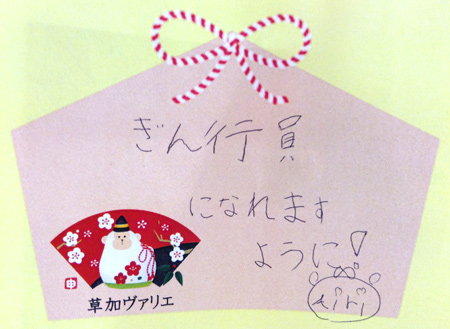 ぎん行員
になれます
ように!
Airi
申
草加ヴァリエ